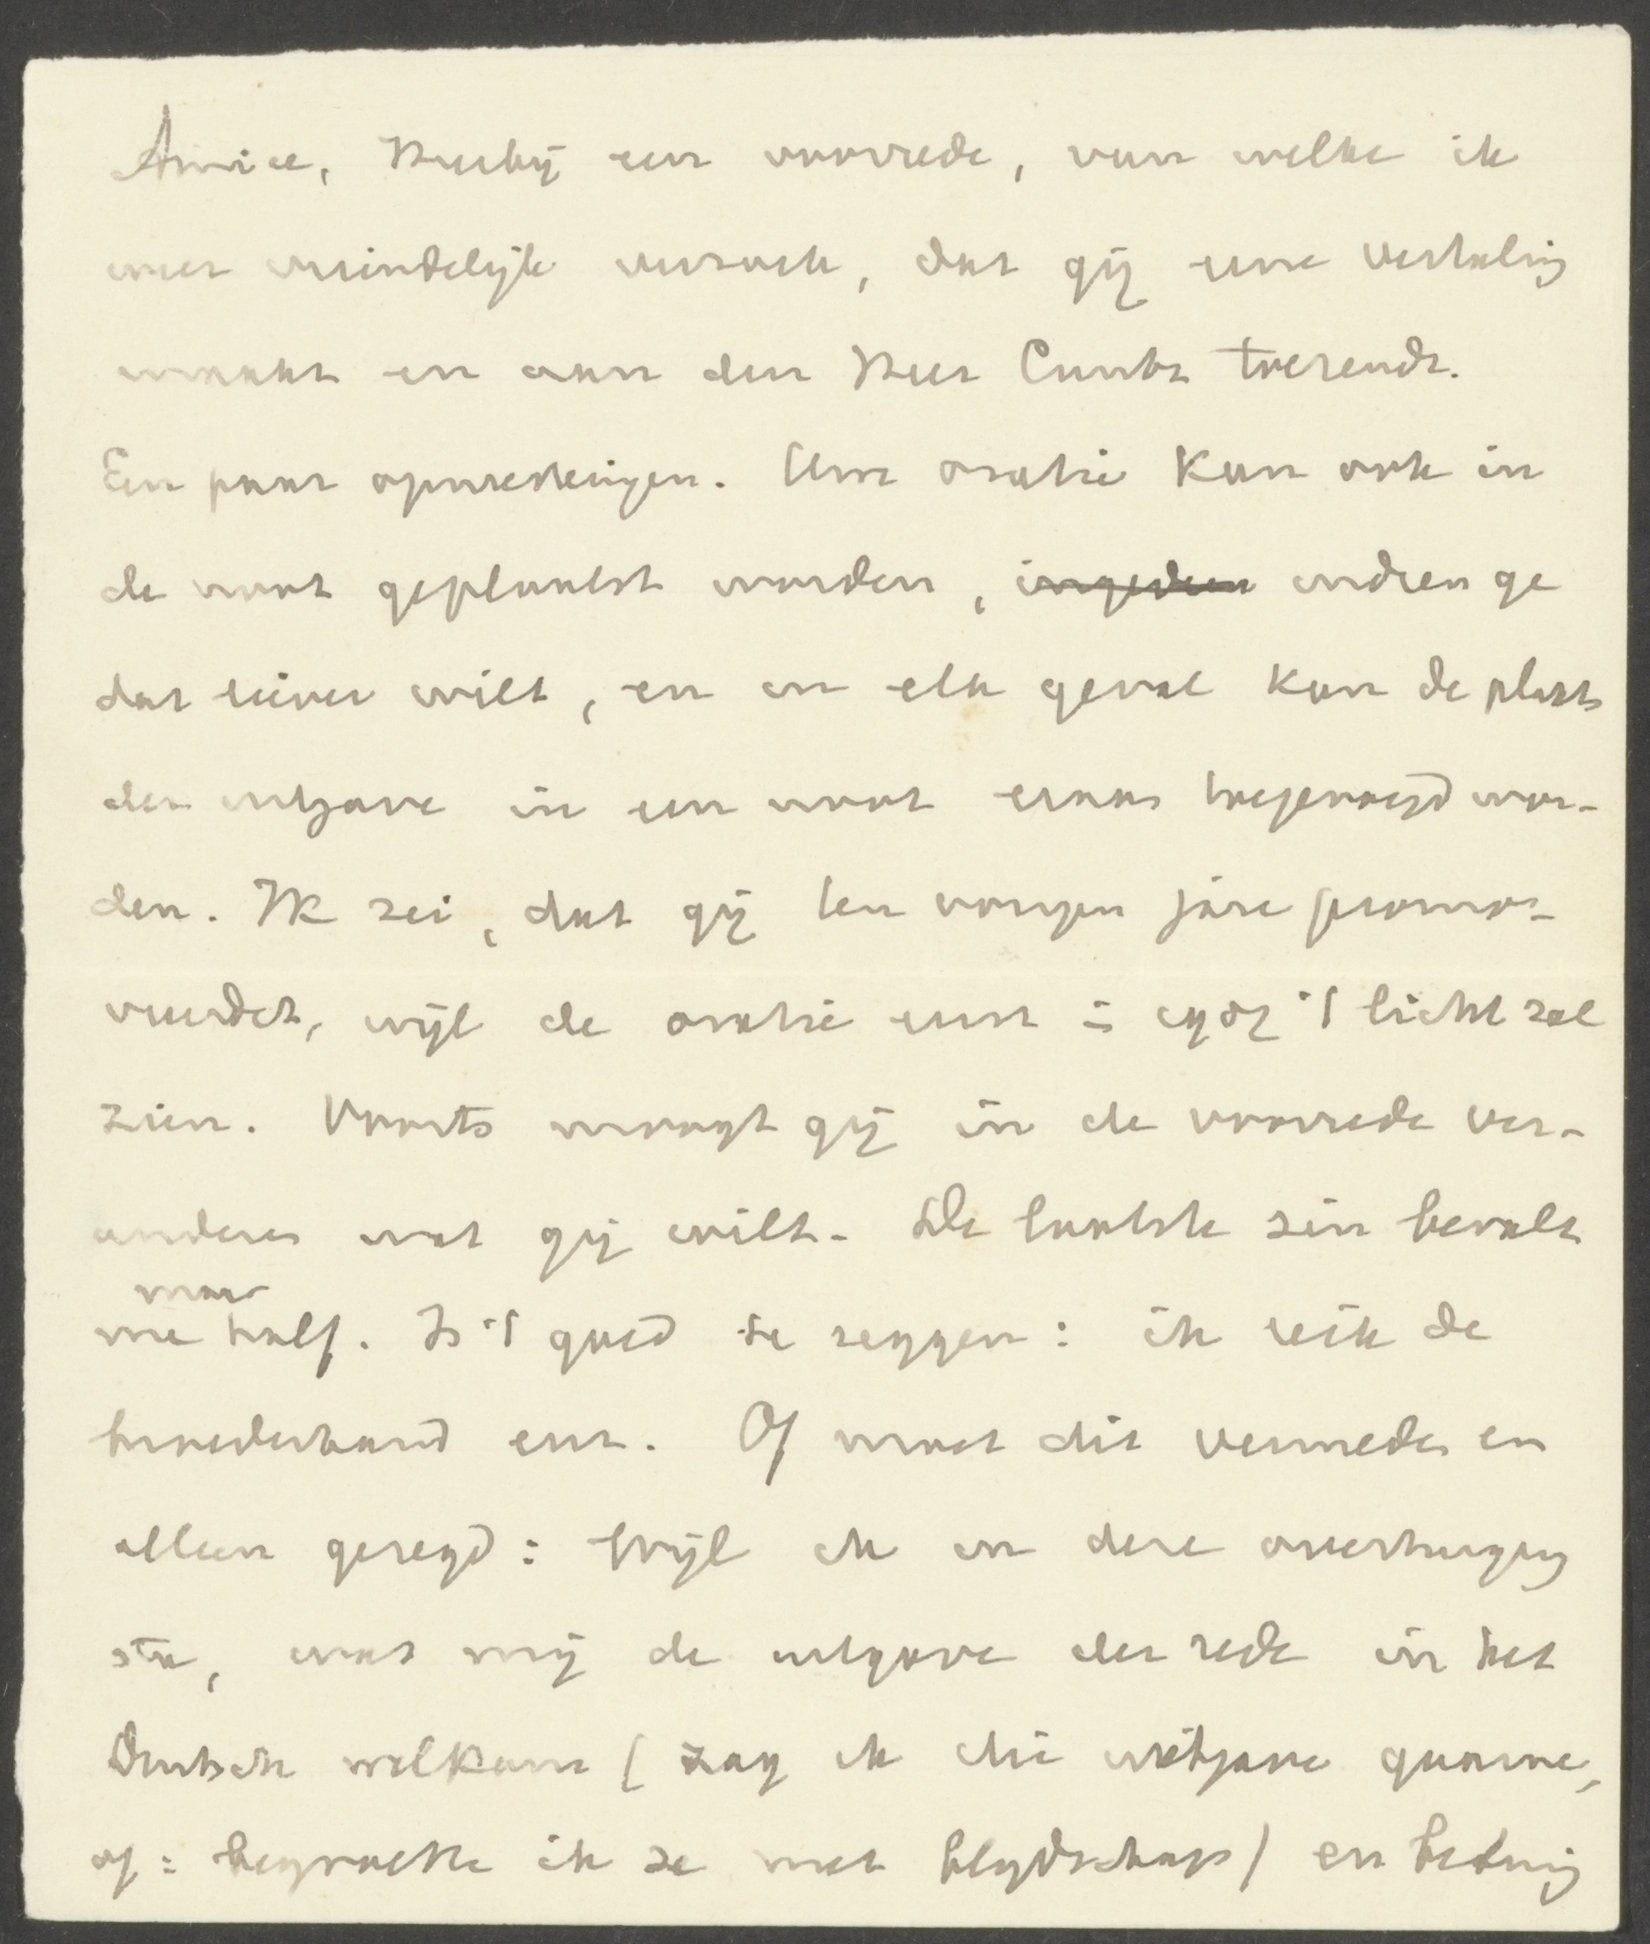 Amice, Hierbij een voorrede, van welke ik
met vriendelijk verzoek, dat gij eene vertaling
maakt en aan den Heer Cuntz toezendt.
Een paar opmerkingen. Uwe oratie kan ook in
de noot geplaatst worden, indien ge
dat liever wilt, en in elk geval kan de plaats
der uitgave in een noot eraan toegevoegd wor-
den. Ik zei, dat gij ten vorigen jare promo-
veerdet, wijl de oratie eerst in 't licht zal
zien. Voorts moogt gij in de voorrede ver-
anderen wat gij wilt. De laatste zin bevalt
me maar half. Is 't goed te zeggen: ik reik de
broederhand enz. Of moet dit vermeden en
alleen gezegd: Wijl ik in deze overtuiging
sta, was mij de uitgave der rede in het
Duitsch welkom (zag ik die uitgave gaarne,
of: begroette ik ze met blijdschap) en betuig